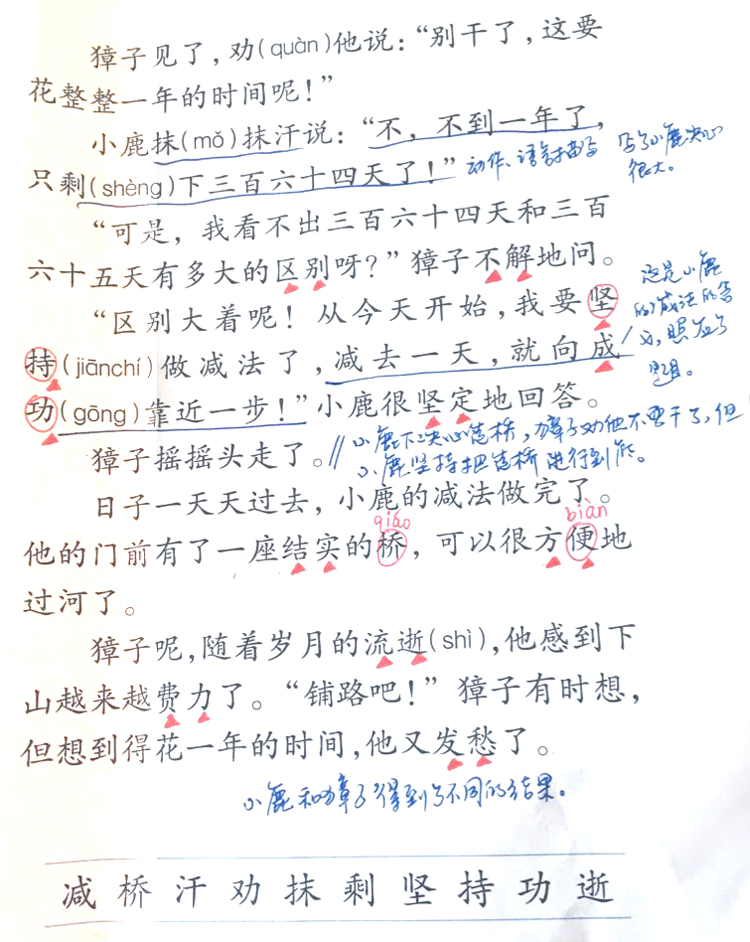 獐子见了，劝(quàn)他说：“别干了，这要
花整整一年的时间呢！”
小鹿抹(mǒ)抹汗说：“不，不到一年了，
只剩(shèng)下三百六十四天了！”
动作、语言描写
写了小鹿决心
很大。
“可是，我看不出三百六十四天和三百
六十五天有多大的区别呀？”獐子不解地问。
“区别大着呢！从今天开始，我要坚
持(jiānchí)做减法了，减去一天，就向成
功(gōng)靠近一步！”小鹿很坚定地回答。
这是小鹿
的减法的含
义，照应了
题目。
獐子摇摇头走了。
小鹿下决心造桥，獐子劝他不要干了，但
小鹿坚持把造桥进行到底。
日子一天天过去，小鹿的减法做完了。
qiáo
biàn
他的门前有了一座结实的桥，可以很方便地
过河了。
獐子呢，随着岁月的流逝(shì)，他感到下
山越来越费力了。“铺路吧！”獐子有时想，
但想到得花一年的时间，他又发愁了。
小鹿和獐子得到了不同的结果。
减 桥 汗 劝 抹 剩 坚 持 功 逝